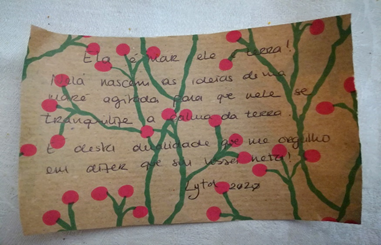 Ela é mar ele terra!
Nela nascem as ideias duma
maré agitada para que nele se
tranquilize a calma da terra.
É desta dualidade que me orgulho
em dizer que sou vossa neta!
2020